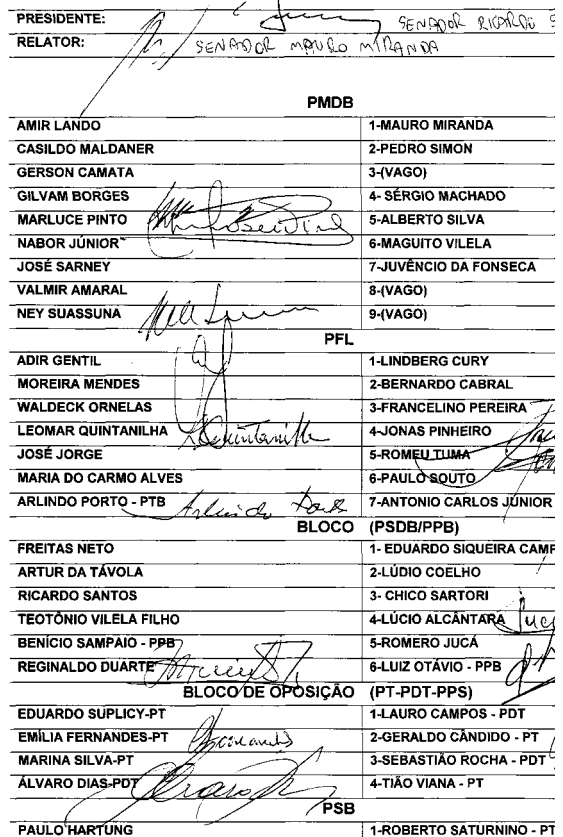 PRESIDENTE: SENADOR RICARDO S
RELATOR: SENADOR MAURO MIRANDA
PMDB
AMIR LANDO 1-MAURO MIRANDA
CASILDO MALDANER 2-PEDRO SIMON
GERSON CAMATA 3-(VAGO)
GILVAM BORGES 4- SÉRGIO MACHADO
MARLUCE PINTO 5-ALBERTO SILVA
NABOR JÚNIOR 6-MAGUITO VILELA
JOSÉ SARNEY 7-JUVÊNCIO DA FONSECA
VALMIR AMARAL 8-(VAGO)
NEY SUASSUNA 9-(VAGO)
PFL
ADIR GENTIL 1-LINDBERG CURY
MOREIRA MENDES 2-BERNARDO CABRAL
WALDECK ORNELAS 3-FRANCELINO PEREIRA
LEOMAR QUINTANILHA Quintanilha 4-JONAS PINHEIRO
JOSÉ JORGE 5-ROMEU TUMA
MARIA DO CARMO ALVES 6-PAULO SOUTO
ARLINDO PORTO - PTB Arlindo Porto 7-ANTONIO CARLOS JÚNIOR
BLOCO (PSDB/PPB)
FREITAS NETO 1- EDUARDO SIQUEIRA CAMP
ARTUR DA TÁVOLA 2-LÚDIO COELHO
RICARDO SANTOS 3- CHICO SARTORI
TEOTÔNIO VILELA FILHO 4-LÚCIO ALCÂNTARA
BENÍCIO SAMPAIO - PPB 5-ROMERO JUCÁ
REGINALDO DUARTE 6-LUIZ OTÁVIO - PPB
BLOCO DE OPOSIÇÃO (PT-PDT-PPS)
EDUARDO SUPLICY-PT 1-LAURO CAMPOS - PDT
EMÍLIA FERNANDES-PT 2-GERALDO CÂNDIDO - PT
MARINA SILVA-PT 3-SEBASTIÃO ROCHA - PDT
ÁLVARO DIAS-PDT 4-TIÃO VIANA - PT
PSB
PAULO HARTUNG 1-ROBERTO SATURNINO - PT